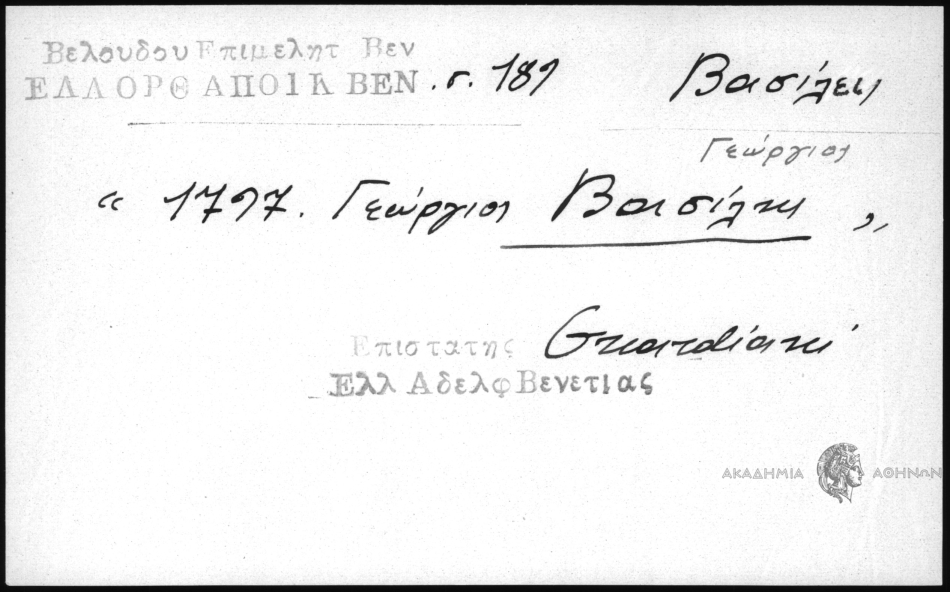 Βελουδου Επιμελητ Βεν
ΕΛΛ ΟΡΘ ΑΠΟΙΚ ΒΕΝ . σ. 189 Βασίλης
Γεώργιος
“ 1797. Γεώργιος Βασίλης „
Επιστατης Guardiani
Ελλ Αδελφ Βενετιας
ΑΚΑΔΗΜΙΑ ΑΘΗΝΩΝ